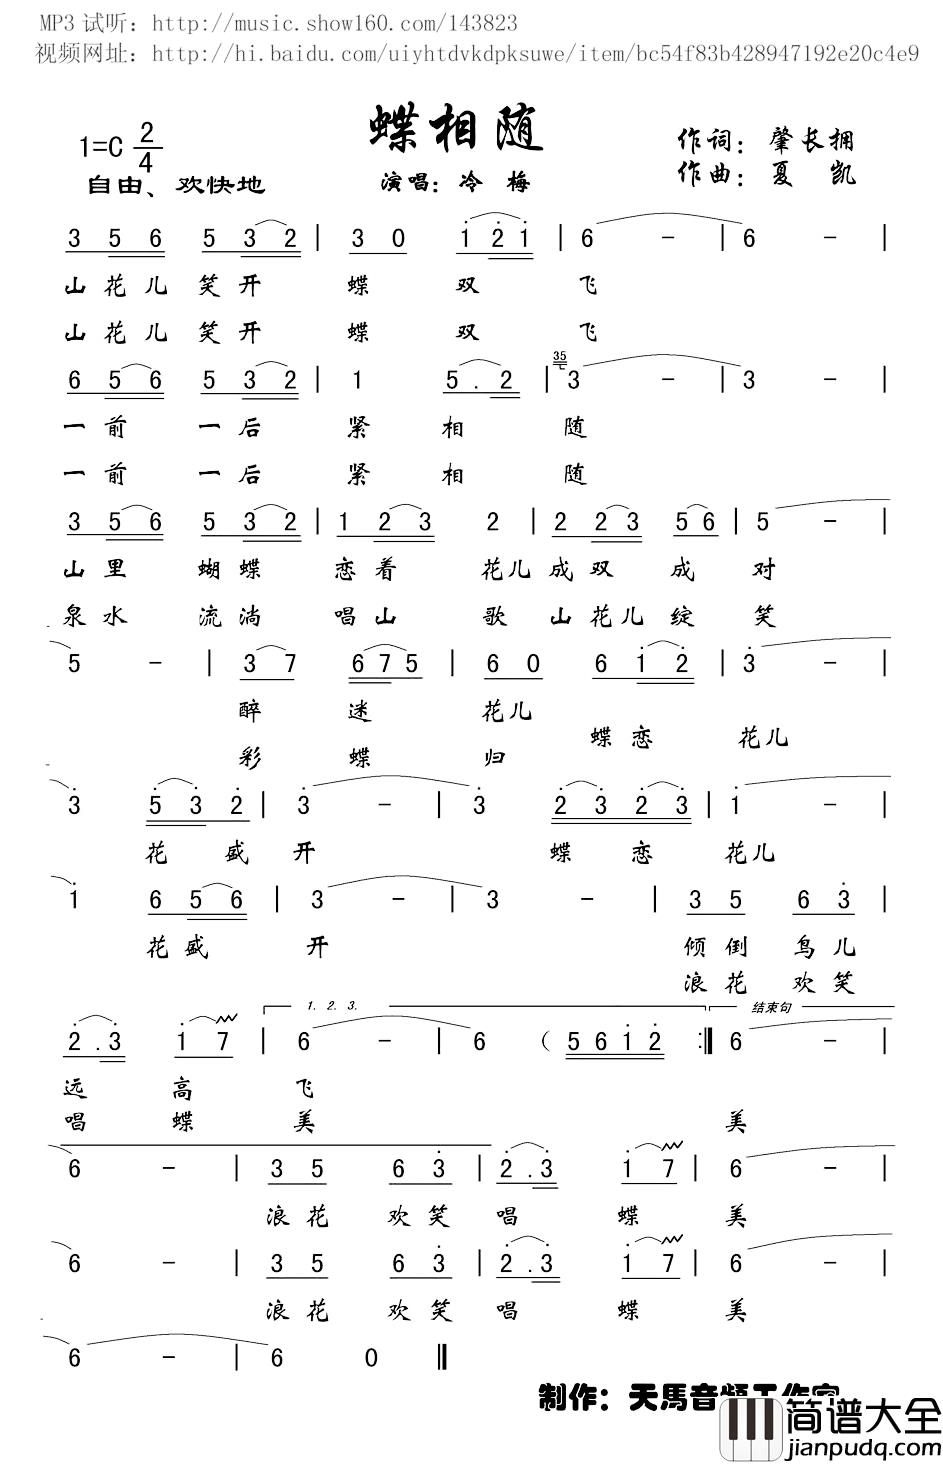 MP3 试听：http://music.show160.com/143823
视频网址：http://hi.baidu.com/uiyhtdvkdpksuwe/item/bc54f83b428947192e20c4e9
蝶相随
1=C 2/4
自由、欢快地
演唱：冷 梅
作词：肇长拥
作曲：夏 凯
3 5 6 5 3 2 | 3 0 1 2 1 | 6 - | 6 - |
山 花 儿 笑 开 蝶 双 飞
山 花 儿 笑 开 蝶 双 飞
6 5 6 5 3 2 | 1 5 . 2 | 35 3 - | 3 - |
一 前 一 后 紧 相 随
一 前 一 后 紧 相 随
3 5 6 5 3 2 | 1 2 3 2 | 2 2 3 5 6 | 5 - |
山 里 蝴 蝶 恋 着 花儿 成 双 成 对
泉 水 流 淌 唱 山 歌 山 花 儿 绽 笑
5 - | 3 7 6 7 5 | 6 0 6 1 2 | 3 - |
醉 迷 花儿 蝶 恋 花儿
彩 蝶 归
3 5 3 2 | 3 - | 3 2 3 2 3 | 1 - |
花 盛 开 蝶 恋 花儿
1 6 5 6 | 3 - | 3 - | 3 5 6 3 |
花 盛 开 倾 倒 鸟 儿
浪 花 欢 笑
1. 2. 3. 结束句
2 . 3 1 7 | 6 - | 6 （ 5 6 1 2 :‖ 6 - |
远 高 飞
唱 蝶 美 美
6 - | 3 5 6 3 | 2 . 3 1 7 | 6 - |
浪 花 欢 笑 唱 蝶 美
6 - | 3 5 6 3 | 2 . 3 1 7 | 6 - |
浪 花 欢 笑 唱 蝶 美
6 - | 6 0 ‖
制作：天馬音频工作室
简谱大全
jianpudq.com